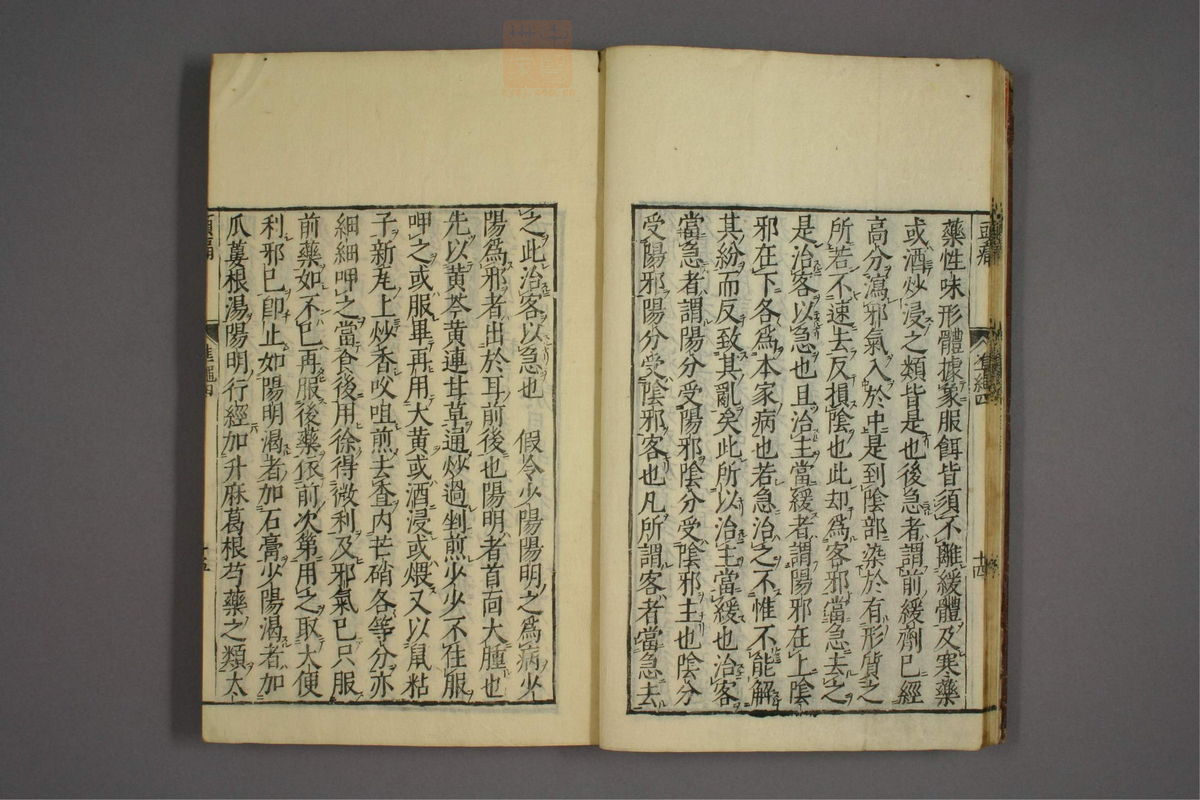 藥性味形體據象服餌皆須不離緩體及寒藥
或酒炒浸之類皆是也後急者謂前緩劑已經
高分瀉邪氣入於中是到陰部染於有形質之
所若不速去反損陰也此却爲客邪當急去之
是治客以急也且治主當緩者謂陽邪在上陰
邪在下各爲本家病也若急治之不惟不能解
其紛而反致其亂矣此所以治主當緩也治客
當急者謂陽分受陽邪陰分受陰邪主也陰分
受陽邪陽分受陰邪客也凡所謂客者當急去
十四
之此治客以急也　假令少陽陽明之爲病少
陽爲邪者出於耳前後也陽明者首面大腫也
先以黄芩黄連甘草通炒過剉煎少少不住服
呷之或服畢再用大黄或酒浸或煨又以鼠粘
子新瓦上炒香㕮咀煎去查内芒硝各等分亦
細細呷之當食後用徐得微利及邪氣已只服
前藥如不已再服後藥依前次第用之取大便
利邪已卽止如陽明渴者加石膏少陽渴者加
瓜蔞根湯陽明行經加升麻葛根芍藥之類太